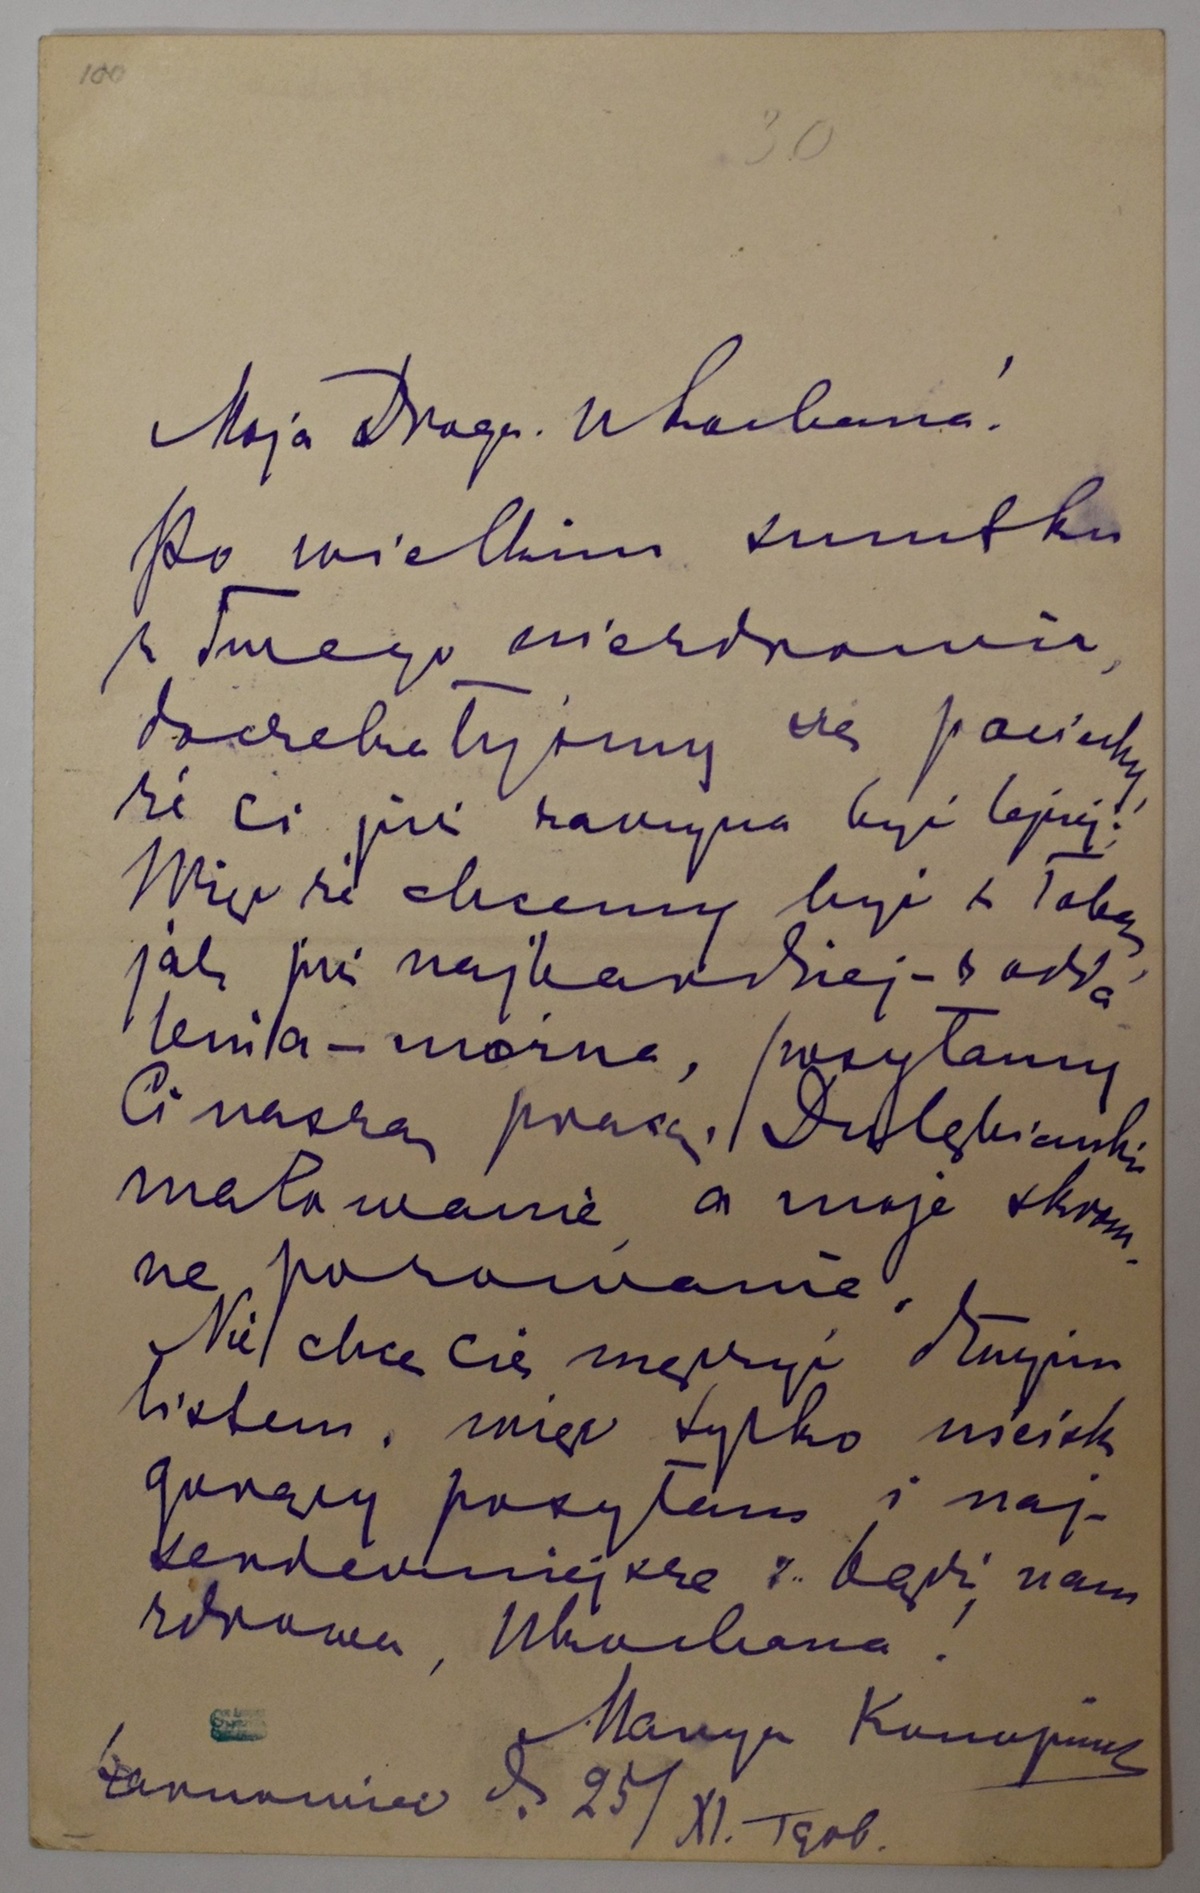 100
30
Moja Droga. Ukochana!
Po wielkim smutku
z Twego niezdrowia,
doczekałyśmy się pociechy,
że Ci już zaczyna być lepiej!
Więc że chcemy być z Tobą,
jak już najbardziej - z odda
lenia - można, posyłamy
Ci naszą pracę. Dulębianki
malowanie, a moje skrom-
ne porowanie.
Nie chcę Cię męczyć długim
listem, więc tylko uścisk
gorący posyłam i naj-
serdeczniejsze: bądź nam
zdrowa, Ukochana!
Marya Konopnicka
Żarnowiec d. 25/XI. 1906.